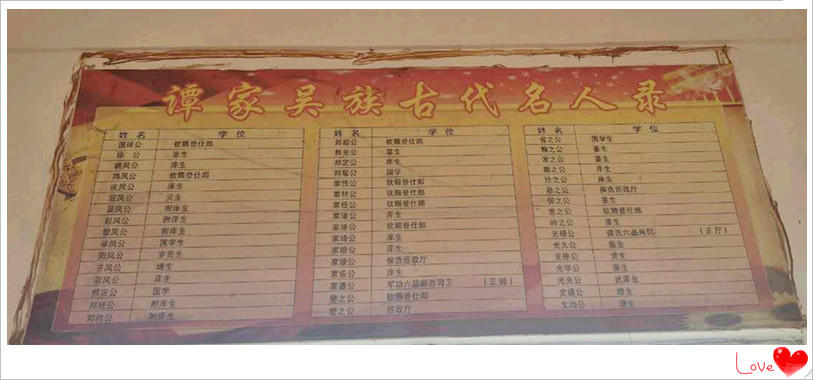 谭家吴族古代名人录
姓名 学位
国球公 钦赐登仕郎
公 鉴生
朝凤公 庠生
鸣凤公 钦赐登仕郎
庆凤公 庠生
冠凤公 贡生
凤公 附庠生
彩凤公 附庠生
凤公 附庠生
凤公 国学生
阳凤公 岁贡生
齐凤公 增生
彩凤公 庠生
邦宗公 国学
邦统公 附庠生
邦纯公 附庠生
姓名 学位
邦超公 钦赐登仕郎
邦光公 鉴生
邦定公 庠生
邦冕公 国学
家性公 钦赐登仕郎
家材公 钦赐登仕郎
家任公 钦赐登仕郎
家瑾公 庠生
家瑶公 钦赐登仕郎
家琦公 庠生
家顺公 庠生
家颂公 侯选巡政厅
家佑公 庠生
家谱公 军功六品 司卫 (正 )
登之公 钦赐登仕郎
受之公 巡政厅
姓名 学位
省之公 国学生
翰之公 鉴生
发之公 鉴生
之公 庠生
之公 庠生
之公 侯选巡政厅
保之公 鉴生
普之公 钦赐登仕郎
之公 鉴生
光禄公 侯选六品 同 (正厅)
光久公 鉴生
光 公 贡生
光学公 鉴生
光亮公 武庠生
文 公 增生
文均公 增生
Love